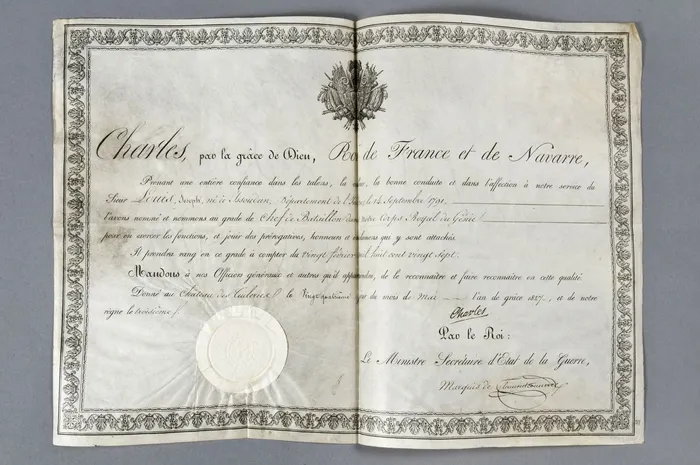 Charles, par la grâce de Dieu, Roi de France et de Navarre,
Prenant une entière confiance dans les talens, la valeur, la bonne conduite et dans l'affection à notre service du
Sieur Joseph, né à Département de l' le 14 Septembre 1791,
l'avons nommé et nommons au grade de Chef de Bataillon dans notre Corps Royal du Génie
pour en exercer les fonctions, et jouir des prérogatives, honneurs et qui y sont attachés.
Il prendra rang en ce grade à compter du vingt février mil huit cent vingt sept.
Mandons à nos Officiers généraux et autres qu'il appartiendra, de le reconnaître et faire reconnaître en cette qualité.
Donné au Château des Tuileries le jour du mois de Mai l'an de grâce 1827, et de notre
règne le troisième.
Charles
Par le Roi:
Le Ministre Secrétaire d'État de la Guerre,
Marquis de Clermont Tonnerre